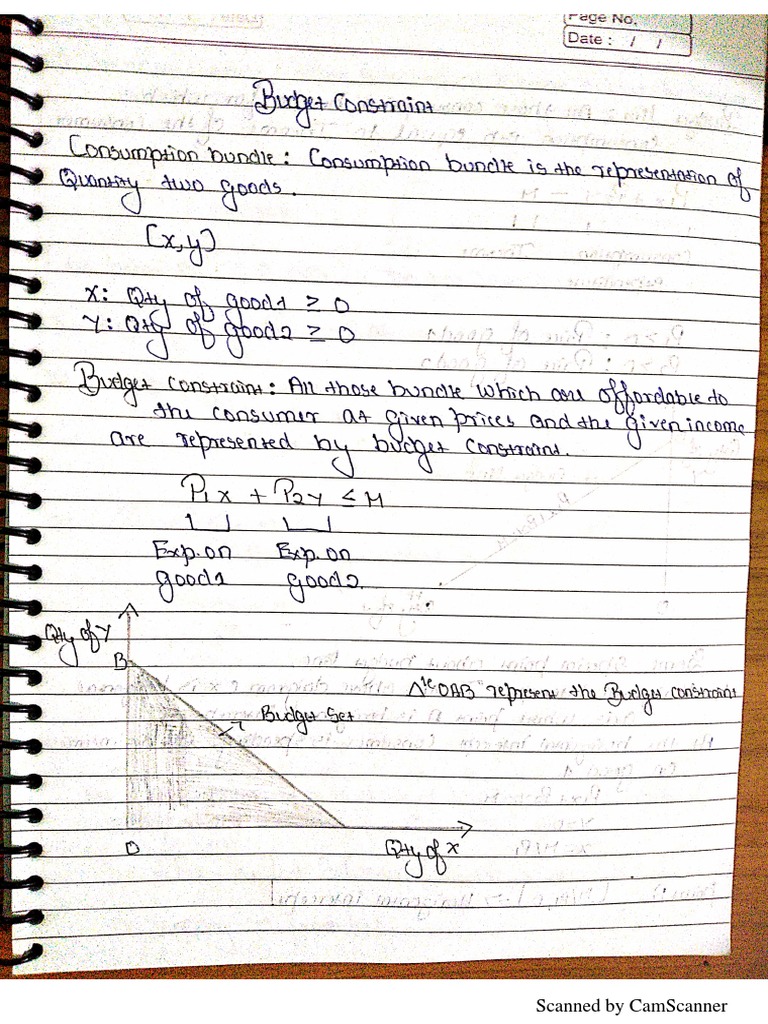 Page No.
Date : / /
Budget Constraint
Consumption bundle : Consumption bundle is the representation of
Quantity two goods.
(x,y)
X: Qty of good1 ≥ 0
Y: Qty of good2 ≥ 0
Budget constraint : All those bundle which are affordable to
the consumer at given prices and the given income
are represented by budget constraint.
P1x + P2y ≤ M
Exp. on Exp. on
good1 good2.
Qty of Y
B
Δle OAB represent the Budget constraint
Budget Set
O
Qty of X
Scanned by CamScanner